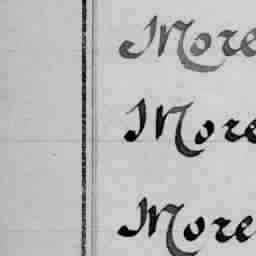 More
More
More